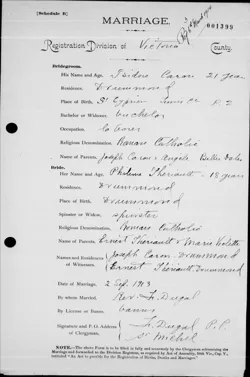 (Schedule B)
MARRIAGE.
001399
Registration Division of Victoria County.
Bridegroom.
His Name and Age. Isidore Caron 21 years
Residence. Drummond
Place of Birth. St Cyprien P. Q
Bachelor or Widower. bachelor
Occupation. laborer
Religious Denomination. Roman Catholic
Name of Parents. Joseph Caron & Angele
Bride.
Her Name and Age. Philomene Theriault 18 years
Residence. Drummond
Place of Birth. Drummond
Spinster or Widow. spinster
Religious Denomination. Roman Catholic
Name of Parents. Ernest Theriault & Marie Violette
Names and Residences of Witnesses. Joseph Caron Drummond
Ernest Theriault, Drummond
Date of Marriage. 2 Sept. 1913
By whom Married. Rev. F. Dugal
By License or Banns. banns
Signature and P. O. Address of Clergyman. F. Dugal P.P.
St Michel
NOTE.—The above Form is to be filled in fully and accurately by the Clergyman solemnizing the
Marriage and forwarded to the Division Registrar, as required by Act of Assembly,
intituled "An Act to provide for the Registration of Births, Deaths and Marriages."